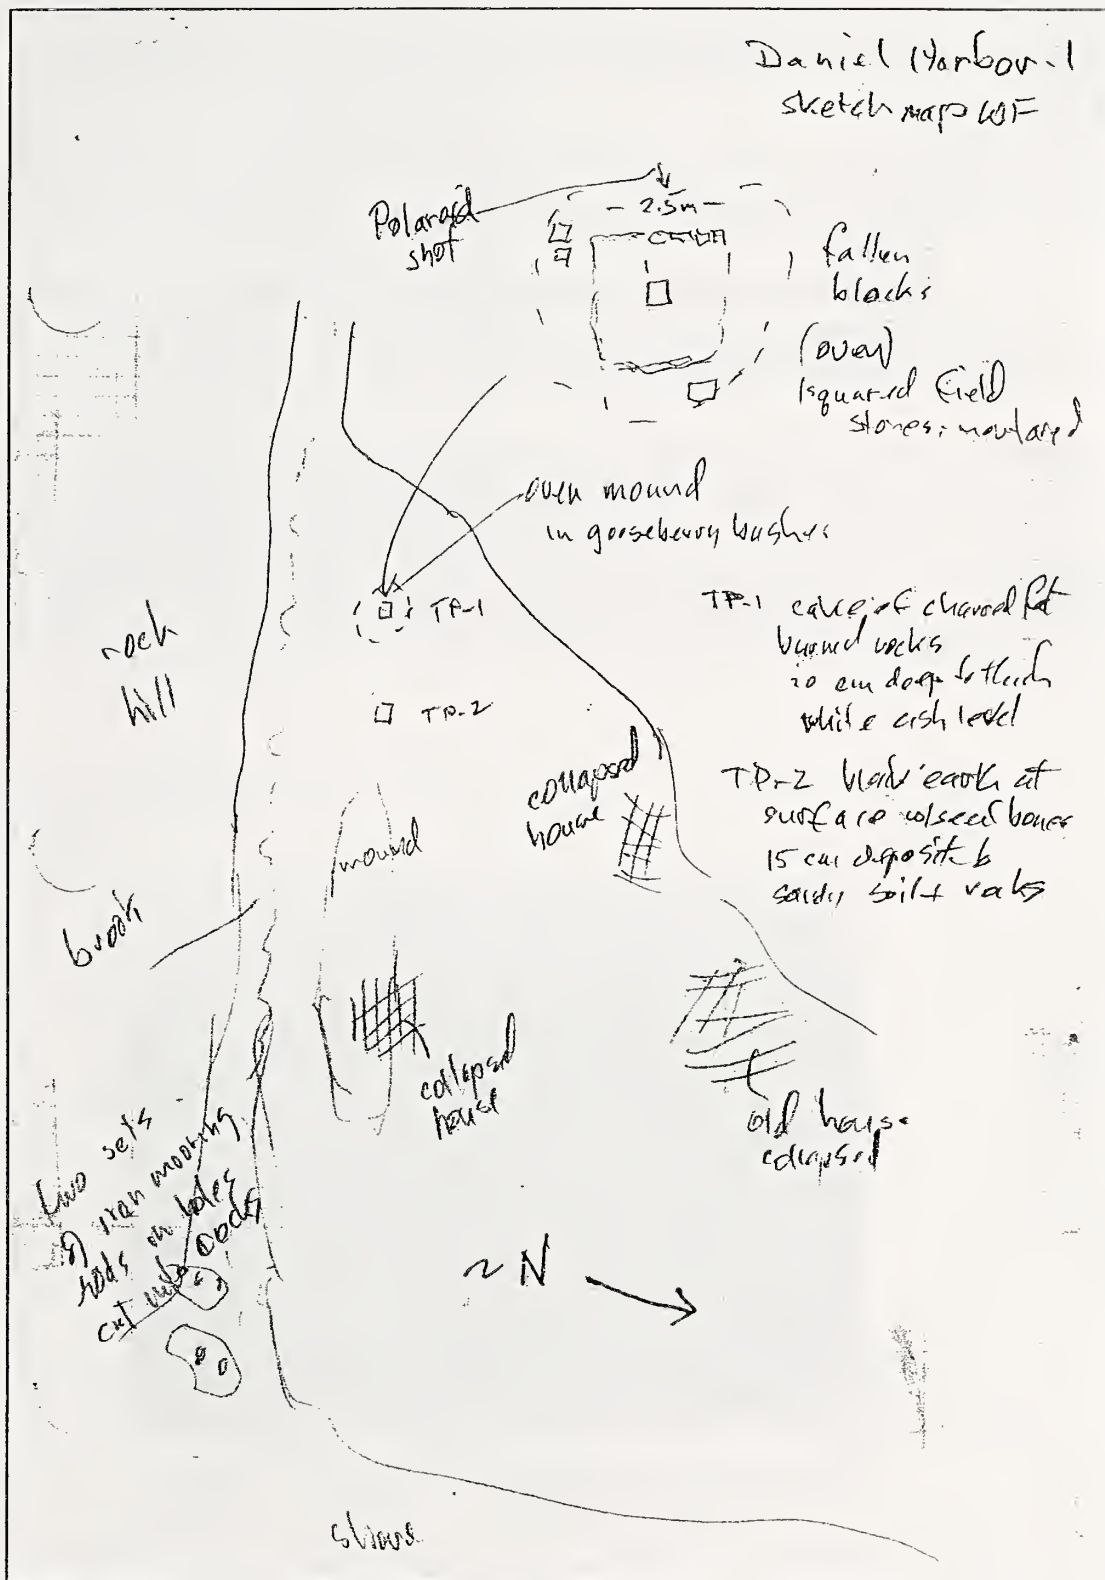 Daniel Harbor-1
sketch map WF
Polaroid
shot
- 2.5m -
fallen
blocks
(oven)
squared field
stones, mortared
oven mound
in gooseberry bushes
TP-1
TP-2
TP-1 cake of charred fat
burned rocks
20 cm deep to thick
white ash level
TP-2 black earth at
surface w/seal bones
15 cm deposit to
sandy soil + rocks
rock
hill
mound
collapsed
house
brook
collapsed
house
old house
collapsed
two sets
of iron mooring
rods in holes
cut into rocks
~ N
shore